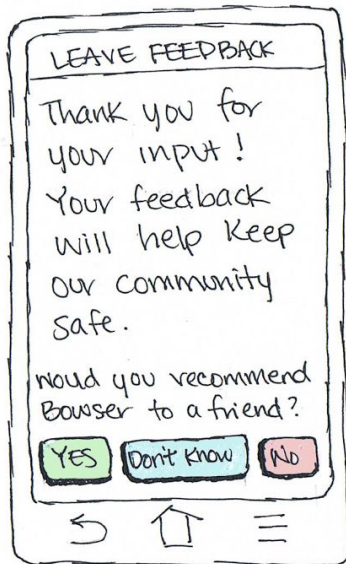 LEAVE FEEDBACK
Thank you for
your input!
Your feedback
will help keep
our community
safe.
Woud you recommend
Bowser to a friend?
YES
Don't Know
No